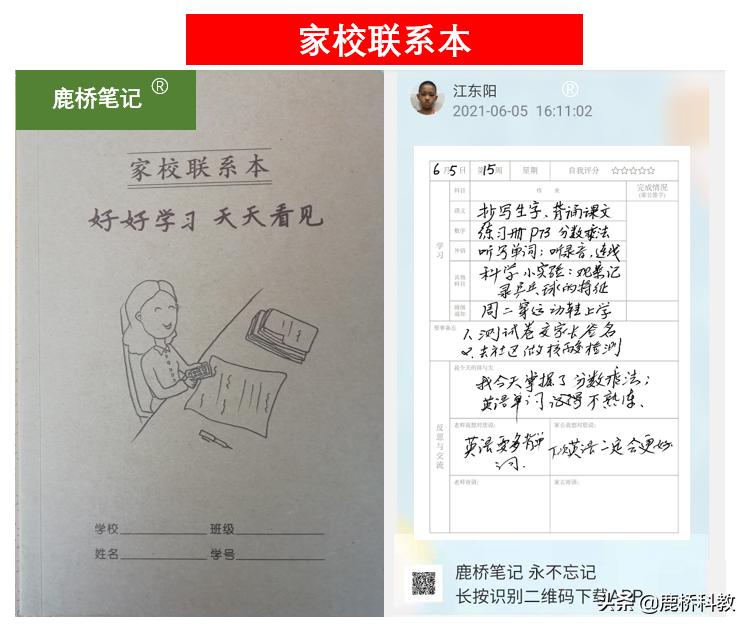 家校联系本
鹿桥笔记®
家校联系本
好好学习 天天看见
学校 班级
姓名 学号
江东阳 ®
2021-06-05 16:11:02
6月5日 第15周 星期 自我评分 ☆☆☆☆☆
科目 作业 完成情况
(家长签字)
学习
语文 抄写生字、背诵课文
数学 练习册 P73 分数乘法
外语 听写单词；听录音，连线
其他科目 科学小实验：观察记
录乒乓球的特征
班级通知 周二穿运动鞋上学
要事备忘 1、测试卷交家长签名
2、去社区做核酸检测
反思与交流
我今天掌握了分数乘法；
英语单词记得不熟练、
老师我想对您说： 家长我想对您说：
英语要多背单 下次英语一定会更好
词.
老师寄语： 家长寄语：
鹿桥笔记 永不忘记
长按识别二维码下载APP
头条 @鹿桥科教